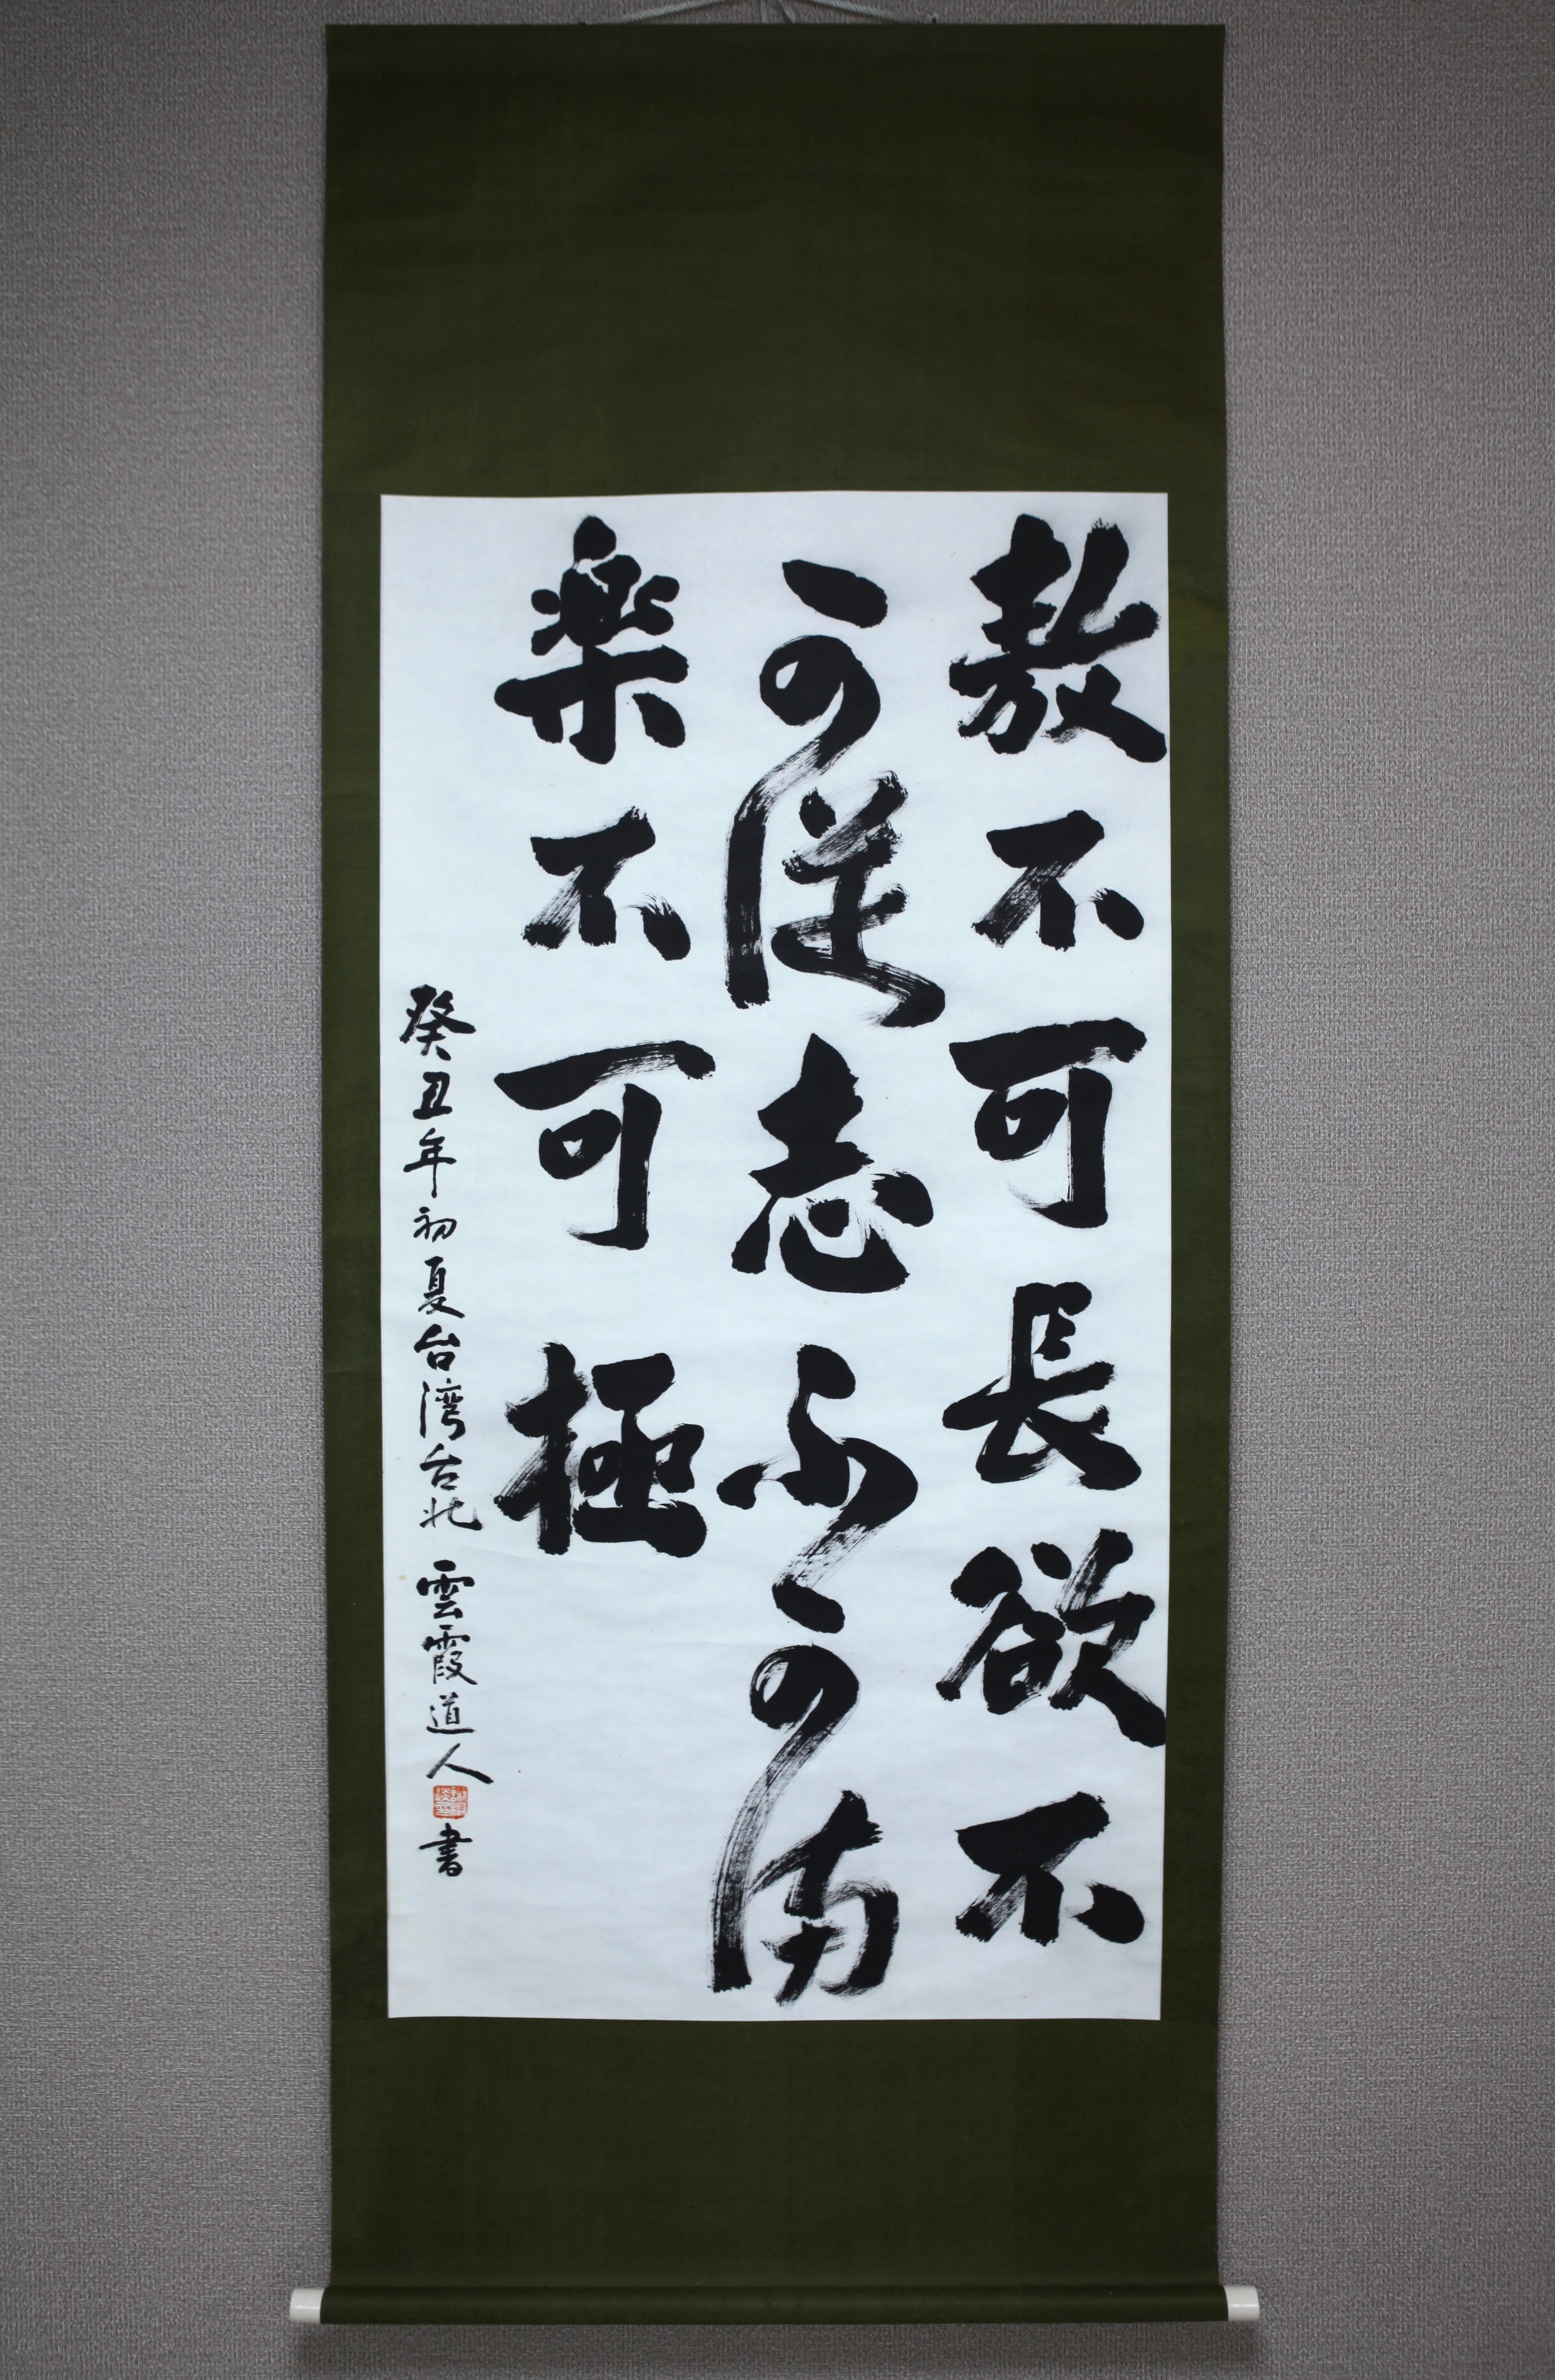 敖不可長欲不
可従志不可満
楽不可極
癸丑年初夏台湾台北 雲霞道人書